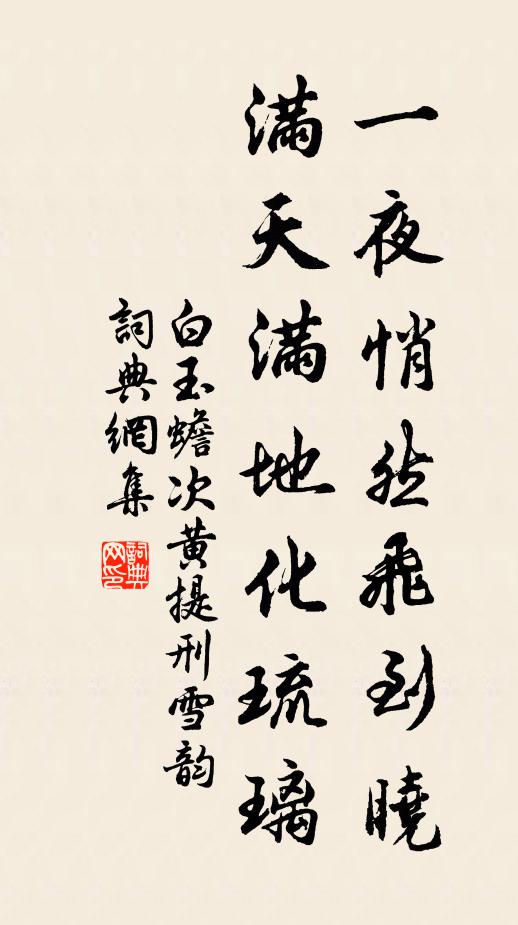 一夜悄然飛到曉
滿天滿地化琉璃
白玉蟾次黄提刑雪韵
詞典網集
詞典网印